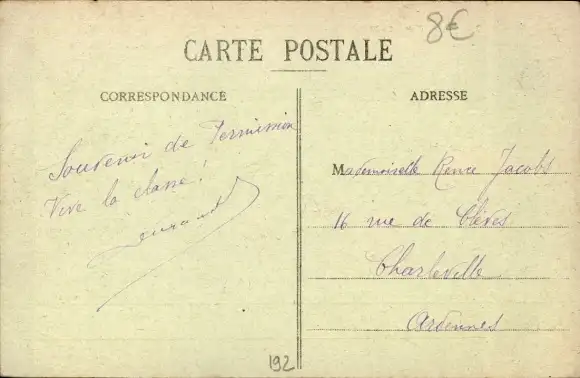 8€
CARTE POSTALE
CORRESPONDANCE
ADRESSE
Souvenir de Permission
Vive la classe !
Durand
Mademoiselle Renée Jacobs
16 rue de Clèves
Charleville
Ardennes
192